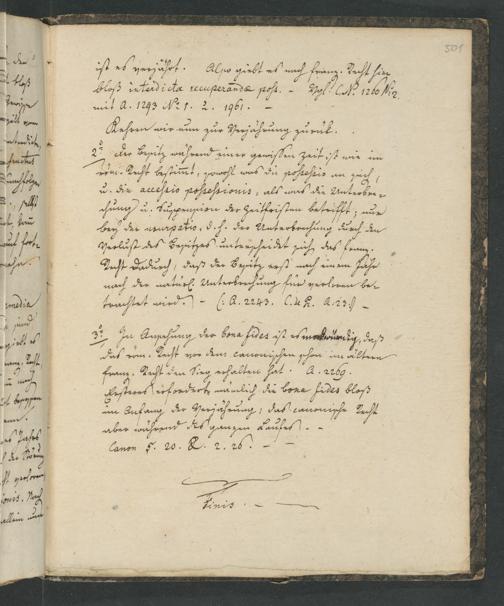 501
ist es verjährt. Also giebt es nach franz. Recht hier
bloß interdicta recuperandae poss. – Vgl. C. N. 1260 No 2.
mit A. 1293 No 1. 2. 1961. –
Kehren wir nun zur Verjährung zurük.
2o Der Besitz während einer gewissen Zeit ist wie im
röm. Recht bestimmt, sowohl was die possessio an sich,
u. die accessio possessionis, als was die Unterbre-
chung u. Suspension der Zeitfristen betrifft; nur
bey der usurpatio, d. h. der Unterbrechung durch den
Verlust des Besitzes unterscheidet sich das franz.
Recht dadurch, daß der Besitz erst nach einem Jahr
nach der natürl. Unterbrechung für verloren be-
trachtet wird. – (: A. 2243. A. 23 :) –
3o In Ansehung der bona fides ist es merkwürdig, daß
das röm. Recht vor dem canonischen schon im ältern
franz. Recht den Sieg erhalten hat. A. 2269.
Ersteres erfordert nämlich die bona fides bloß
im Anfang der Verjährung; das canonische Recht
aber während des ganzen Laufes. –
Canon 5. 20. X. 2. 26. – –
Finis. –